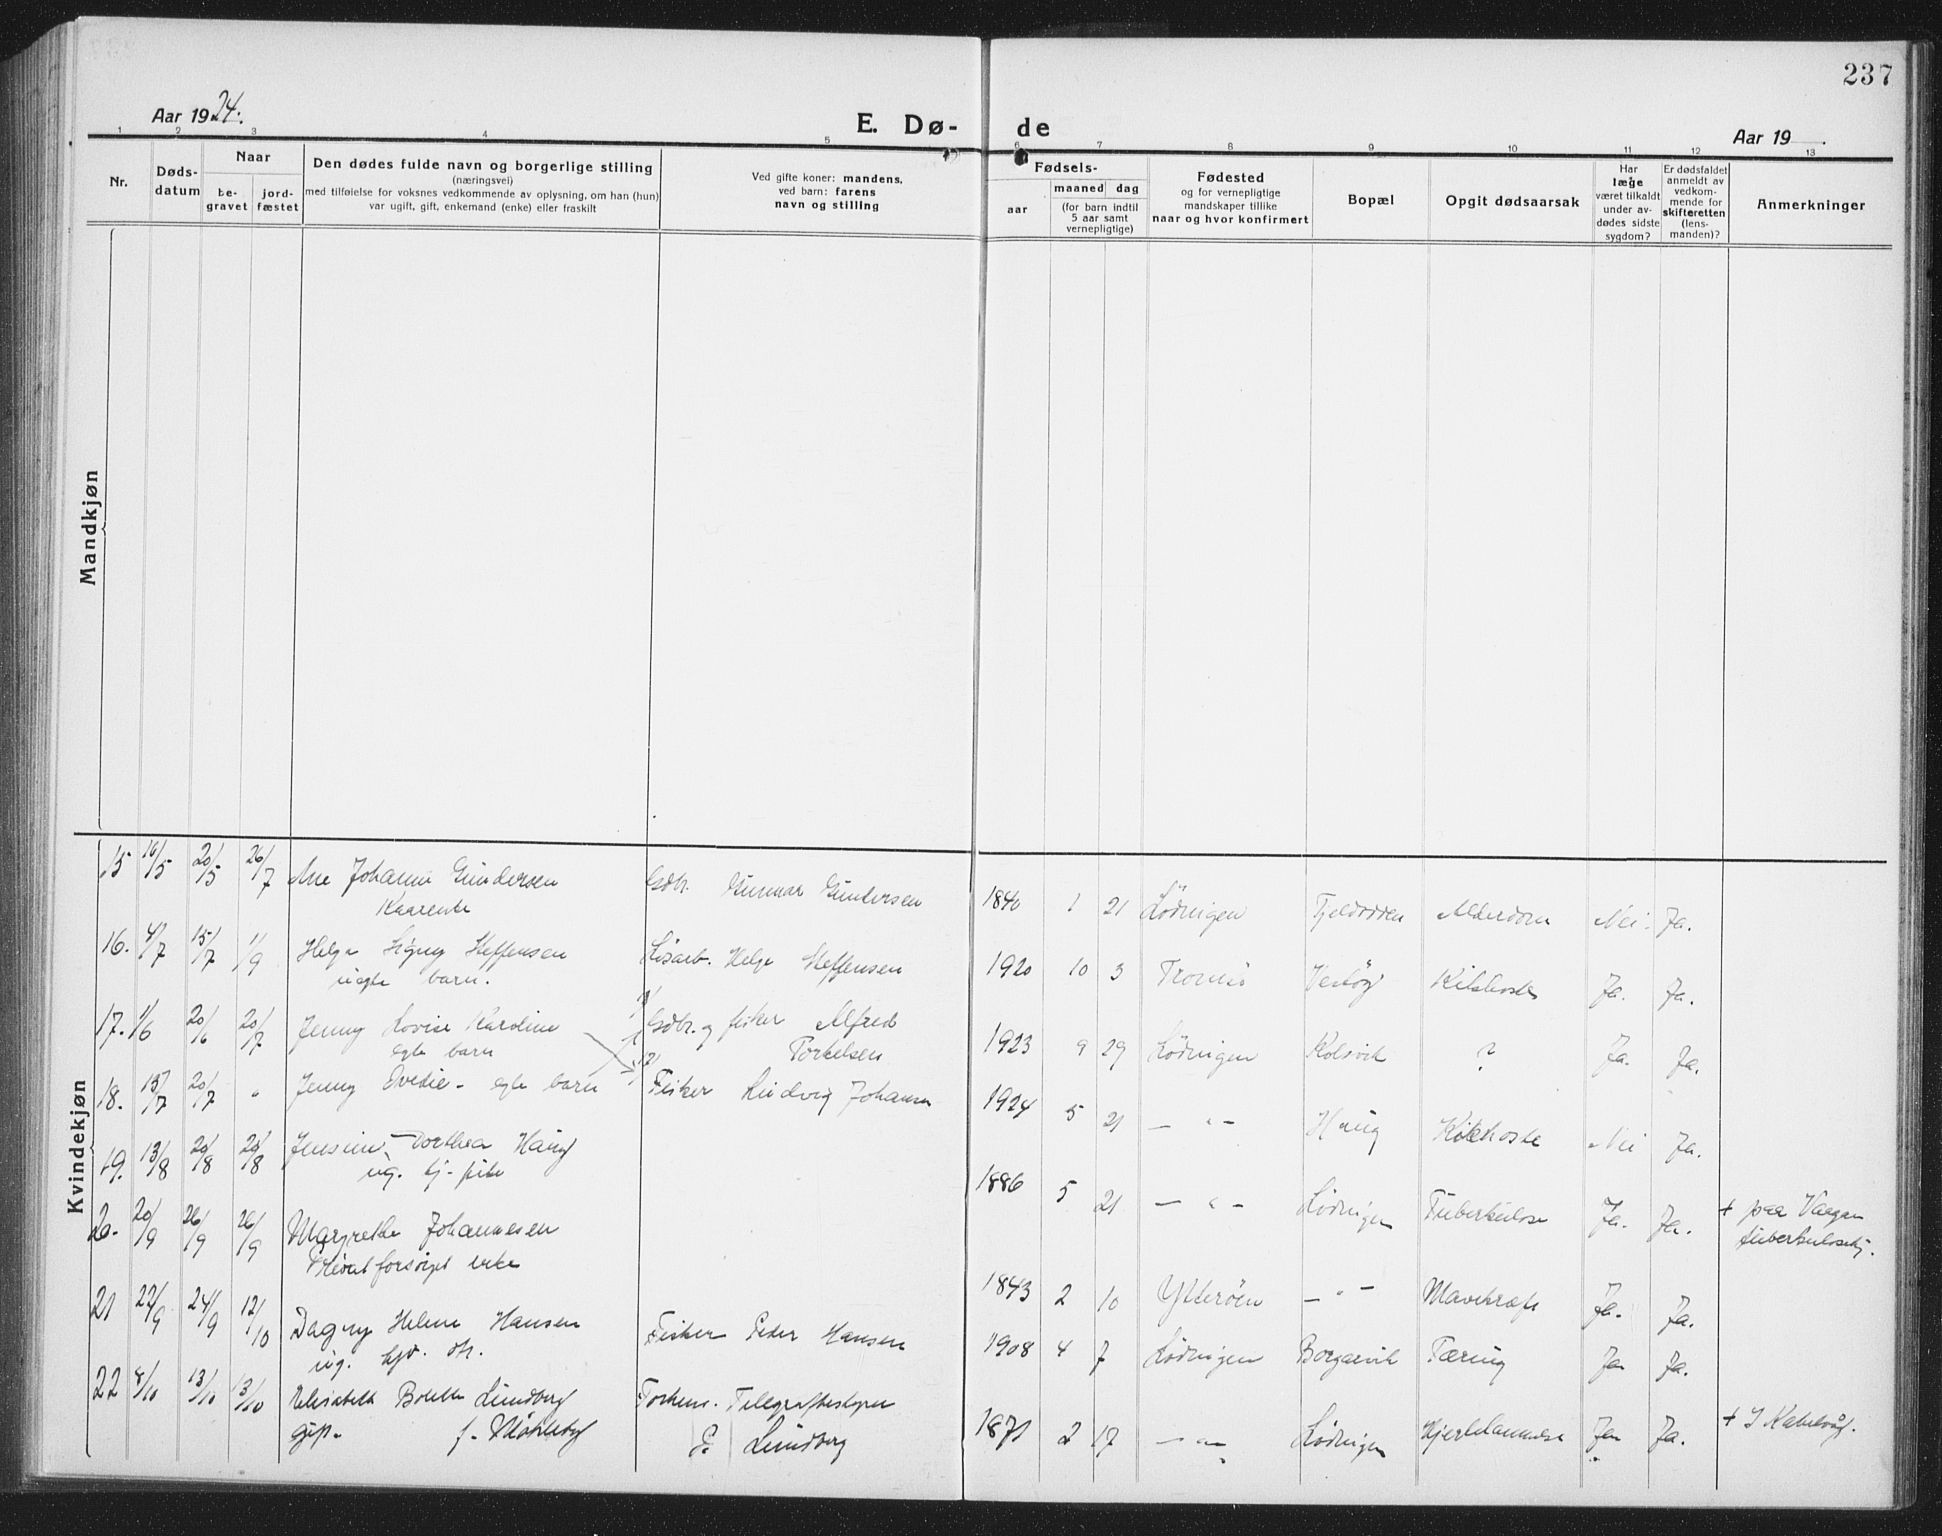 237
Aar 1924.
E. Dø- de
Aar 19 .
1 2 3 4 5 6 7 8 9 10 11 12 13
Nr.
Døds-
datum
Naar
be-
gravet
jord-
fæstet
Den dødes fulde navn og borgerlige stilling
(næringsvei)
med tilføielse for voksnes vedkommende av oplysning, om han (hun)
var ugift, gift, enkemand (enke) eller fraskilt
Ved gifte koner: mandens,
ved barn: farens
navn og stilling
Fødsels-
aar
maaned dag
(for barn indtil
5 aar samt
vernepligtige)
Fødested
og for vernepligtige
mandskaper tillike
naar og hvor konfirmert
Bopæl
Opgit dødsaarsak
Har
læge
været tilkaldt
under av-
dødes sidste
sygdom?
Er dødsfaldet
anmeldt av
vedkom-
mende for
skifteretten
(lens-
manden)?
Anmerkninger
Mandkjøn
Kvindekjøn
15 16/5 20/5 26/7 Ane Johanne Gundersen Gdbr. Gunnar Gundersen 1840 1 21 Lødingen Fjeldodden Alderdom Nei. Ja.
Kaarenke
16. 4/7 15/7 1/9 Helga Signy Steffensen Løsarb. Helge Steffensen 1920 10 3 Tromsø Vestøy Kikhoste Ja. Ja.
uegte barn.
17. 1/6 20/6 20/7 Jenny Lovise Karoline Gdbr. og fisker Alfred 1923 9 29 Lødingen Kolsvik ? Ja. Ja.
egte barn Torkelsen
18. 15/7 20/7 " Jenny Ovedie - egte barn Fisker Ludvig Johansen 1924 5 21 — " — Haug Kikhoste Nei Ja.
19. 13/8 20/8 20/8 Jensine Dorthea Haug 1886 5 21 — " — Lødingen Tuberkulose Ja. Ja. + paa Vaagan
ug. tj. pike tuberkulosehj.
20. 20/9 26/9 26/9 Margrethe Johannesen 1843 2 10 Ytterøen — " — Mavekræft Ja. Ja.
Privat forsørget enke
21 22/9 24/9 12/10 Dagny Helene Hansen Fisker Peder Hansen 1908 4 7 Lødingen Borgarvik Tæring Ja Ja.
ug.
22 8/10 13/10 13/10 Elisabeth Bolette Lundberg Forhenv. Telegrafbestyrer 1871 2 17 — " — Lødingen Hjertelammelse Ja Ja. + I Kabelvåg.
gift. f. Lundberg